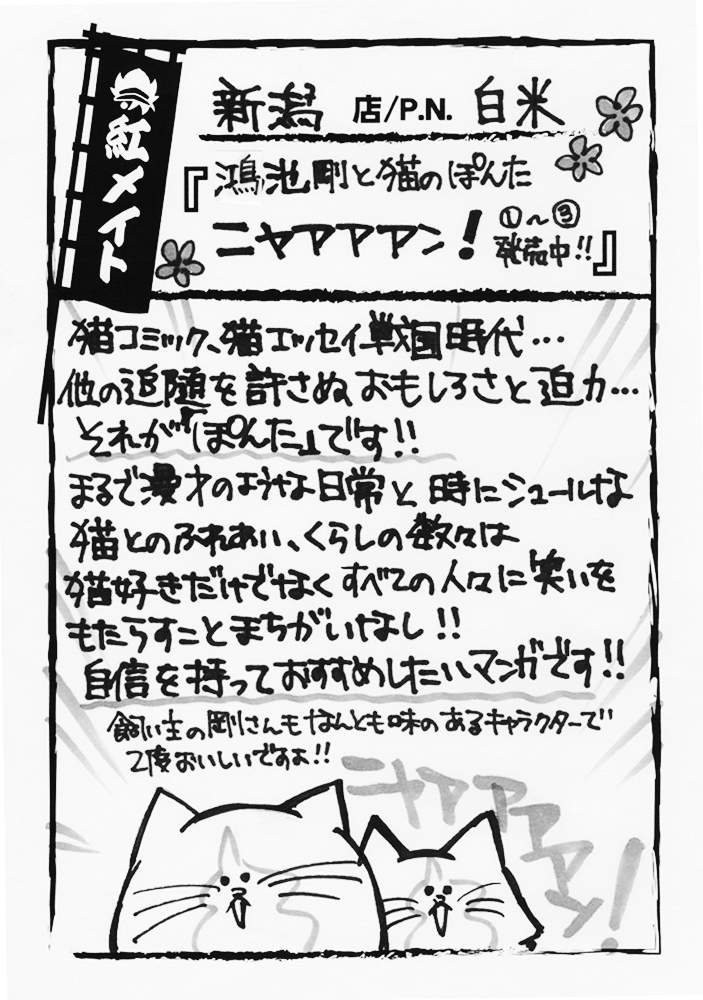 紅メイト
新潟 店/P.N. 白米
『鴻池剛と猫のぽんた
ニャアアアン! ①~③
発売中!!』
猫コミック、猫エッセイ戦国時代…
他の追随を許さぬおもしろさと迫力…
それが「ぽんた」です!!
まるで漫才のような日常と時にシュールな
猫とのふれあい、くらしの数々は
猫好きだけでなくすべての人々に笑いを
もたらすことまちがいなし!!
自信を持っておすすめしたいマンガです!!
飼い主の剛さんもなんとも味のあるキャラクターで
2度おいしいですよ!!
ニャアアアアン!